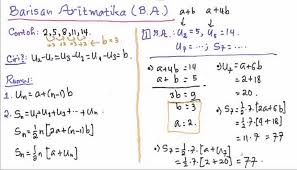 Barisan Aritmatika (B.A.)
Contoh: 2, 5, 8, 11, 14.
+3 +3 +3 +3 → b = 3.
Ciri²: U₂-U₁ = U₃-U₂ = U₄-U₃ = b
Rumus:
1. Uₙ = a+(n-1)b
2. Sₙ = U₁+U₂+U₃+...+Uₙ
Sₙ = ½n [2a+(n-1)b]
Sₙ = ½n [a+Uₙ]
a+b a+4b
1. B.A. U₂ = 5, U₅ = 14.
U₇ = ...; S₇ = ...
a+4b = 14
a+b = 5
3b = 9
b = 3
a = 2.
U₇ = a+6b
= 2+18
= 20.
S₇ = ½.7.[2a+6b]
= ½.7.[4+18]
= 11.7 = 77
S₇ = ½.7.[a+U₇]
= ½.7.[2+20] = 77.